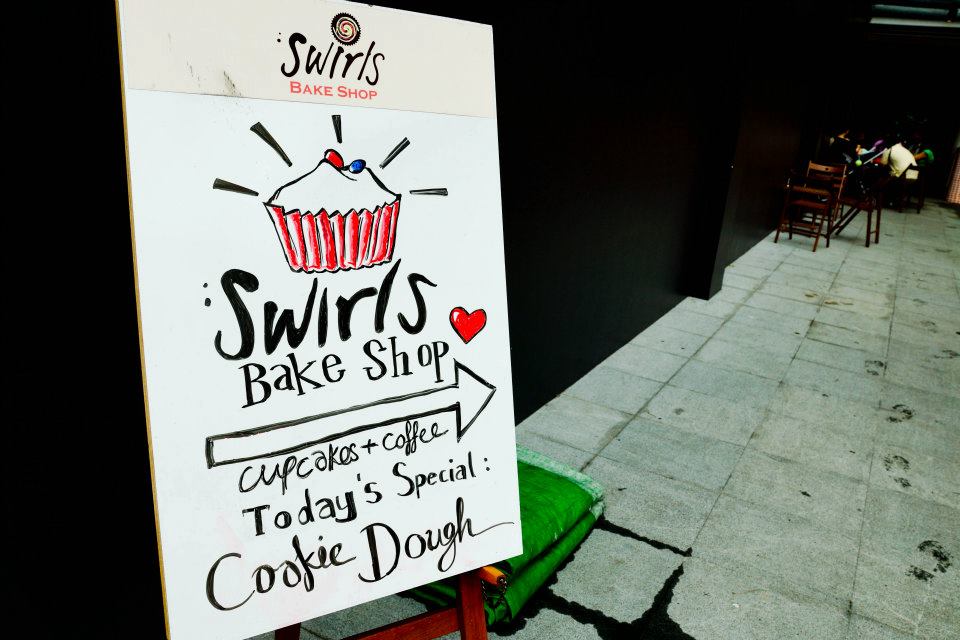 Swirls
BAKE SHOP
Swirls
Bake Shop
cupcakes + coffee
Today's Special:
Cookie Dough